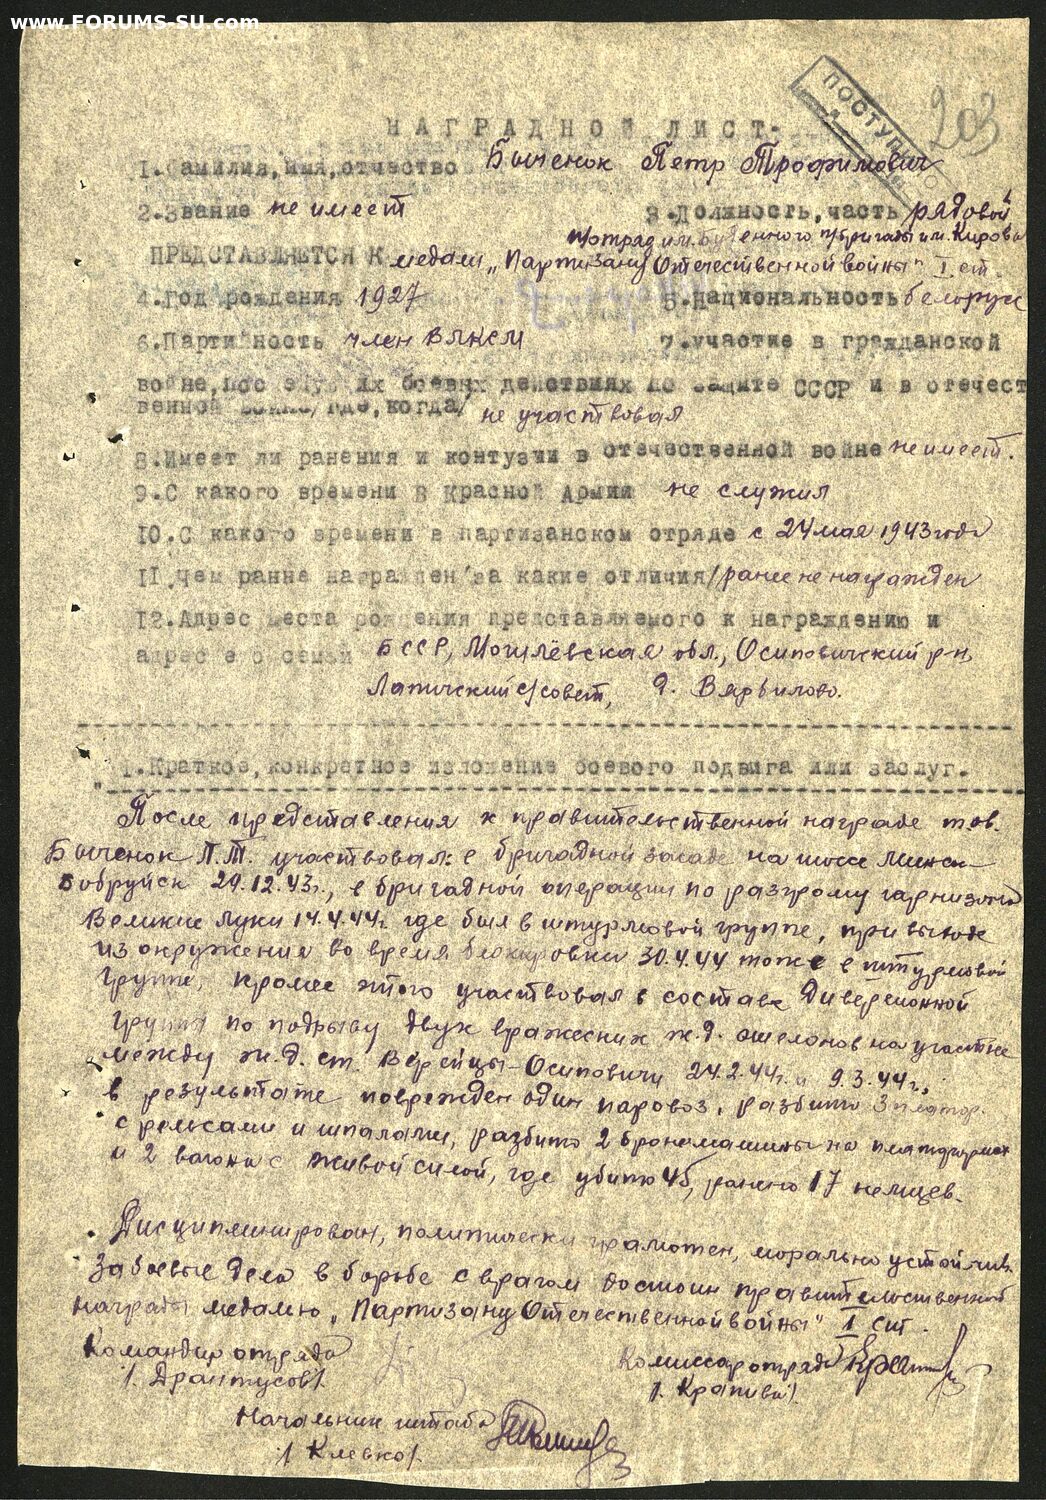 www.FORUMS-SU.com
203
НАГРАДНОЙ ЛИСТ.
1.Фамилия, имя, отчество Быченок Петр Трофимович
2.Звание не имеет 3.Должность, часть рядовой
п/отряд им. Буденного п/бригады им. Кирова
ПРЕДСТАВЛЯЕТСЯ К медали „Партизану Отечественной войны" I ст.
4.Год рождения 1927 5.Национальность белорусс
6.Партийность член ВЛКСМ 7.участие в гражданской
войне, боевых действиях по защите СССР и в отечест
венной войне/где, когда/ не участвовал
8.Имеет ли ранения и контузии в отечественной войне не имеет.
9.С какого времени в Красной Армии не служил
10.С какого времени в партизанском отряде с 24 мая 1943 года
11.Чем ранне награжден/за какие отличия/ ранее не награжден
12.Адрес места рождения представляемого к награждению и
адрес его семьи БССР, Могилёвская обл., Осиповичский р-н,
Лапичский с/совет, д. Вярьилово.
1.Краткое, конкретное изложение боевого подвига или заслуг.
После представления к правительственной награде тов.
Быченок П.Т. участвовал: в бригадной засаде на шоссе Минск-
Бобруйск 29.12.43г., в бригадной операции по разгрому гарнизона
Великие Луки 14.4.44г. где был в штурмовой группе, при выходе
из окружения во время блокировки 30.4.44 тоже в штурмовой
группе, кроме этого участвовал в составе диверсионной
группы по подрыву двух вражеских ж.д. эшелонов на участке
между ж.д. ст. Верейцы-Осиповичи 24.2.44г. и 9.3.44г.,
в результате поврежден один паровоз, разбито 3 платфор.
с рельсами и шпалами, разбито 2 бронемашины на платформах
и 2 вагона с живой силой, где убито 45, ранено 17 немцев.
Дисциплинирован, политически грамотен, морально устойчив.
За боевые дела в борьбе с врагом достоин правительственной
награды медалью „Партизану Отечественной войны" I ст.
Командир отряда Комиссар отряда
/. /. Крапива/.
Начальник штаба
/ Клевко/.